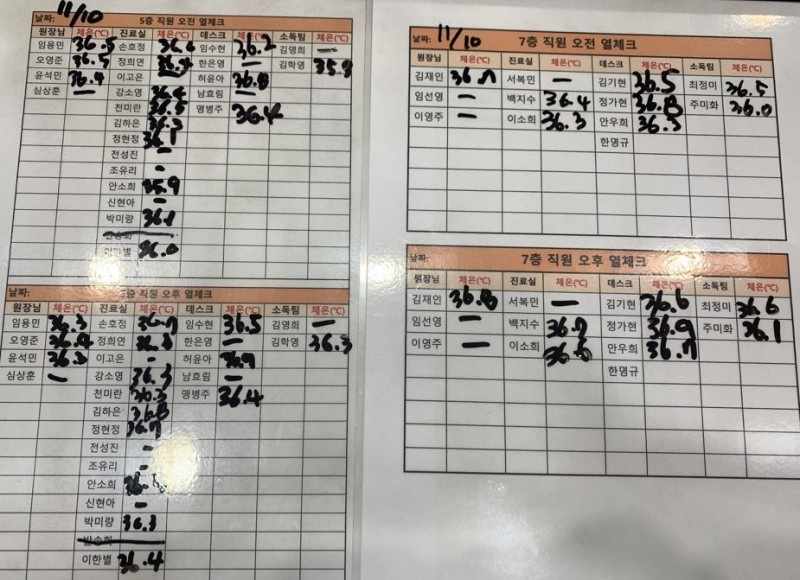 날짜: 11/10 5층 직원 오전 열체크
원장님 체온(℃) 진료실 체온(℃) 데스크 체온(℃) 소독팀 체온(℃)
임용민 손호정 36.4 임수현 36.2 김영희 —
오영준 36.5 정희연 36.4 한은영 — 김학영 35.9
윤석민 36.4 이고은 — 허윤아 36.8
심상훈 — 강소영 36.4 남효림 —
천미란 36.5 맹병주 36.4
김하은 36.3
정현정 36.1
전성진 —
조유리 —
안소희 35.9
신현아 —
박미량 36.1
이한별 36.0
날짜: 5층 직원 오후 열체크
원장님 체온(℃) 진료실 체온(℃) 데스크 체온(℃) 소독팀 체온(℃)
임용민 36.3 손호정 36.7 임수현 36.5 김영희 —
오영준 정희연 한은영 — 김학영 36.3
윤석민 36.3 이고은 — 허윤아 36.9
심상훈 — 강소영 36.3 남효림 —
천미란 36.3 맹병주 36.4
김하은 36.8
정현정 36.7
전성진 —
조유리 —
안소희
신현아 —
박미량 36.3
이한별 36.4
날짜: 11/10 7층 직원 오전 열체크
원장님 체온(℃) 진료실 체온(℃) 데스크 체온(℃) 소독팀 체온(℃)
김재인 36.7 서복민 — 김기현 36.5 최정미 36.5
임선영 — 백지수 36.4 정가현 36.8 주미화 36.0
이영주 — 이소희 36.3 안우희 36.3
한명규
날짜: 7층 직원 오후 열체크
원장님 체온(℃) 진료실 체온(℃) 데스크 체온(℃) 소독팀 체온(℃)
김재인 36.8 서복민 — 김기현 36.6 최정미 36.6
임선영 — 백지수 36.7 정가현 36.9 주미화 36.1
이영주 — 이소희 36.6 안우희 36.7
한명규